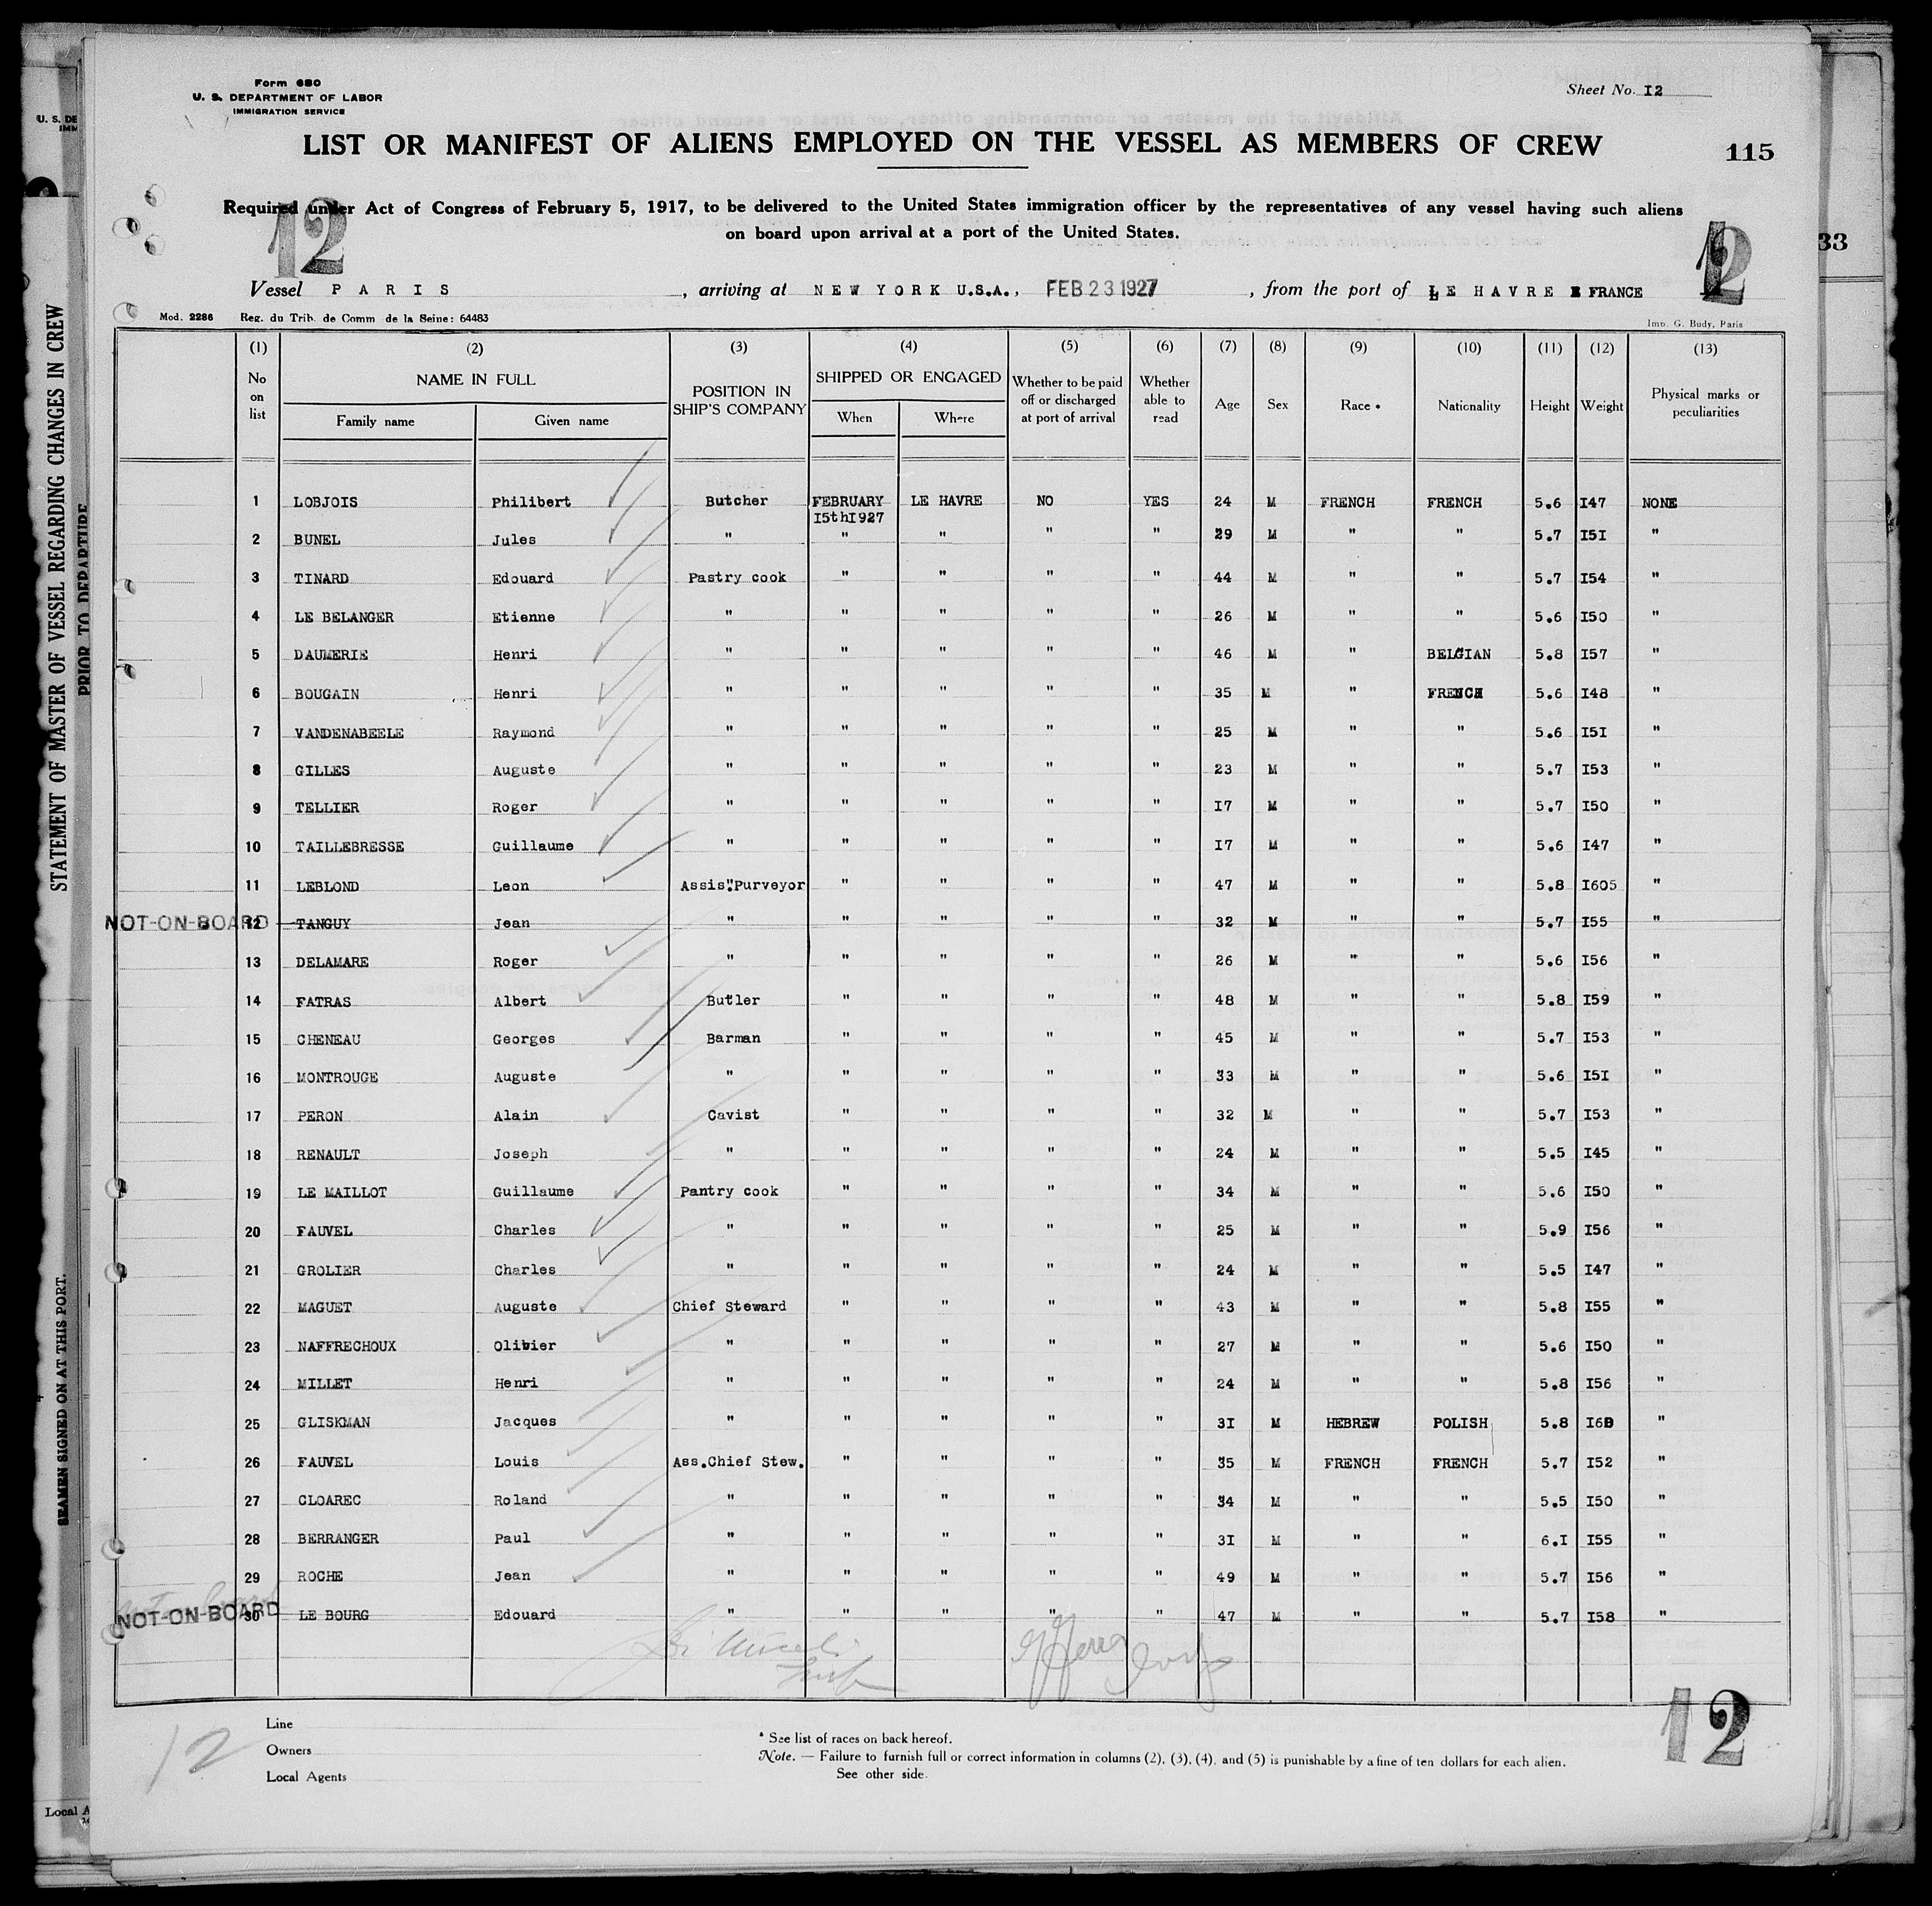 Form 680
U. S. DEPARTMENT OF LABOR
IMMIGRATION SERVICE
Sheet No. I2
LIST OR MANIFEST OF ALIENS EMPLOYED ON THE VESSEL AS MEMBERS OF CREW
115
Required under Act of Congress of February 5, 1917, to be delivered to the United States immigration officer by the representatives of any vessel having such aliens
on board upon arrival at a port of the United States.
12
12
33
Vessel PARIS, arriving at NEW YORK U.S.A., FEB 23 1927, from the port of LE HAVRE FRANCE
Mod. 2286 Reg. du Trib. de Comm de la Seine: 64483
Imp. G. Budy, Paris
(1) (2) (3) (4) (5) (6) (7) (8) (9) (10) (11) (12) (13)
No on list
NAME IN FULL
Family name Given name
POSITION IN SHIP'S COMPANY
SHIPPED OR ENGAGED
When Where
Whether to be paid off or discharged at port of arrival
Whether able to read
Age Sex Race * Nationality Height Weight
Physical marks or peculiarities
1 LOBJOIS Philibert Butcher FEBRUARY I5thI927 LE HAVRE NO YES 24 M FRENCH FRENCH 5.6 I47 NONE
2 BUNEL Jules " " " " " 29 M " " 5.7 I5I "
3 TINARD Edouard Pastry cook " " " " 44 M " " 5.7 I54 "
4 LE BELANGER Etienne " " " " " 26 M " " 5.6 I50 "
5 DAUMERIE Henri " " " " " 46 M " BELGIAN 5.8 I57 "
6 BOUGAIN Henri " " " " " 35 M " FRENCH 5.6 I48 "
7 VANDENABEELE Raymond " " " " " 25 M " " 5.6 I5I "
8 GILLES Auguste " " " " " 23 M " " 5.7 I53 "
9 TELLIER Roger " " " " " I7 M " " 5.7 I50 "
10 TAILLEBRESSE Guillaume " " " " " I7 M " " 5.6 I47 "
11 LEBLOND Leon Assis".Purveyor " " " " 47 M " " 5.8 I605 "
NOT-ON-BOARD 12 TANGUY Jean " " " " " 32 M " " 5.7 I55 "
13 DELAMARE Roger " " " " " 26 M " " 5.6 I56 "
14 FATRAS Albert Butler " " " " 48 M " " 5.8 I59 "
15 CHENEAU Georges Barman " " " " 45 M " " 5.7 I53 "
16 MONTROUGE Auguste " " " " " 33 M " " 5.6 I5I "
17 PERON Alain Cavist " " " " 32 M " " 5.7 I53 "
18 RENAULT Joseph " " " " " 24 M " " 5.5 I45 "
19 LE MAILLOT Guillaume Pantry cook " " " " 34 M " " 5.6 I50 "
20 FAUVEL Charles " " " " " 25 M " " 5.9 I56 "
21 GROLIER Charles " " " " " 24 M " " 5.5 I47 "
22 MAGUET Auguste Chief Steward " " " " 43 M " " 5.8 I55 "
23 NAFFRECHOUX Olivier " " " " " 27 M " " 5.6 I50 "
24 MILLET Henri " " " " " 24 M " " 5.8 I56 "
25 GLISKMAN Jacques " " " " " 3I M HEBREW POLISH 5.8 "
26 FAUVEL Louis Ass.Chief Stew. " " " " 35 M FRENCH FRENCH 5.7 I52 "
27 CLOAREC Roland " " " " " 34 M " " 5.5 I50 "
28 BERRANGER Paul " " " " " 3I M " " 6.I I55 "
29 ROCHE Jean " " " " " 49 M " " 5.7 I56 "
NOT-ON-BOARD 30 LE BOURG Edouard " " " " " 47 M " " 5.7 I58 "
12
Line
Owners
Local Agents
* See list of races on back hereof.
Note. — Failure to furnish full or correct information in columns (2), (3), (4), and (5) is punishable by a fine of ten dollars for each alien.
See other side.
12
STATEMENT OF MASTER OF VESSEL REGARDING CHANGES IN CREW
PRIOR TO DEPARTURE
SEAMEN SIGNED ON AT THIS PORT.
U. S. DE
IMM
Local A